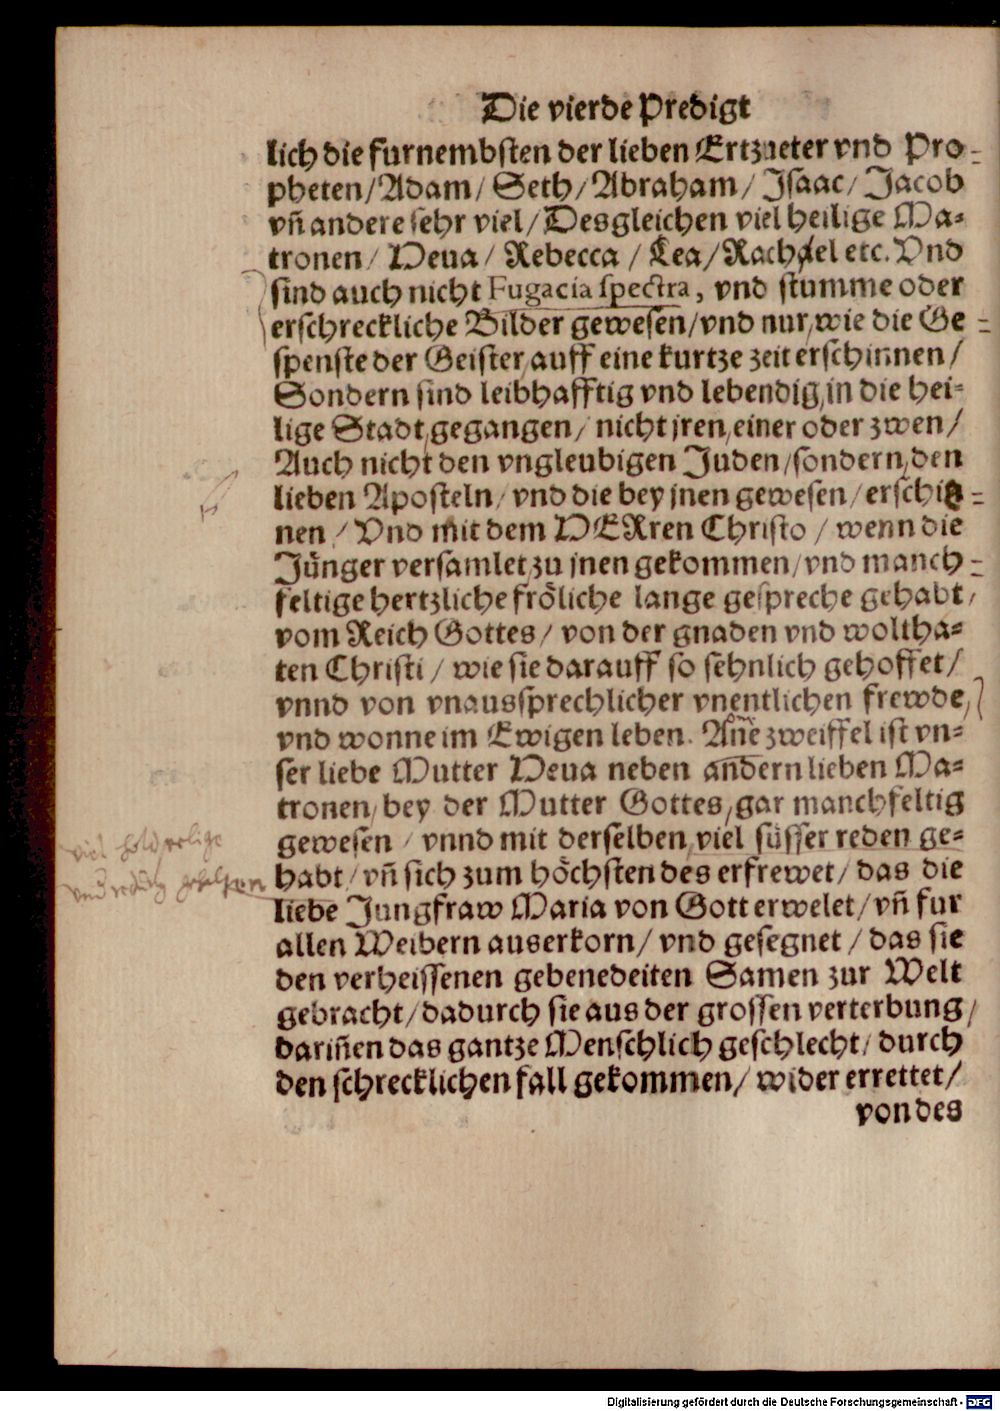 Die vierde Predigt
lich die furnembsten der lieben Ertzueter vnd Pro-
pheten/Adam/ Seth/Abraham/ Jsaac/ Jacob
vñ andere sehr viel/Desgleichen viel heilige Ma-
tronen/ Heua/ Rebecca / Lea/Rachael etc. Vnd
sind auch nicht Fugacia spectra, vnd stumme oder
erschreckliche Bilder gewesen/vnd nur,wie die Ge-
spenste der Geister,auff eine kurtze zeit erschinnen/
Sondern sind leibhafftig vnd lebendig,in die hei-
lige Stadt,gegangen/ nicht jren,einer oder zwen/
Auch nicht den vngleubigen Juden/sondern,den
lieben Aposteln/ vnd die bey jnen gewesen/erschie-
nen/ Vnd mit dem HERren Christo / wenn die
Jünger versamlet,zu jnen gekommen/vnd manch-
feltige hertzliche fröliche lange gespreche gehabt/
vom Reich Gottes/ von der gnaden vnd woltha-
ten Christi/ wie sie darauff so sehnlich gehoffet/
vnnd von vnaussprechlicher vnentlichen frewde,
vnd wonne im Ewigen leben. Ane zweiffel ist vn-
ser liebe Mutter Heua neben andern lieben Ma-
tronen/bey der Mutter Gottes,gar manchfeltig
gewesen / vnnd mit derselben,viel süsser reden ge-
viel holdselige
vnd gehalten
habt/vñ sich zum höchsten des erfrewet/ das die
liebe Jungfraw Maria von Gott erwelet/vñ fur
allen Weibern auserkorn/ vnd gesegnet/das sie
den verheissenen gebenedeiten Samen zur Welt
gebracht/dadurch sie aus der grossen verterbung/
dariñen das gantze Menschlich geschlecht/durch
den schrecklichen fall gekommen/ wider errettet/
von des
Digitalisierung gefördert durch die Deutsche Forschungsgemeinschaft - DFG